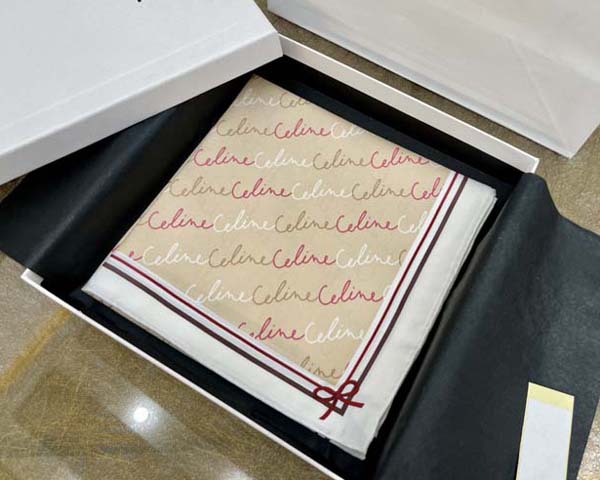 Celine Celine
Celine Celine Celine
Celine Celine Celine Celine
Celine Celine Celine Celine Celine
Celine Celine Celine Celine Celine
Celine Celine Celine Celine
Celine Celine Celine
Celine Celine
line